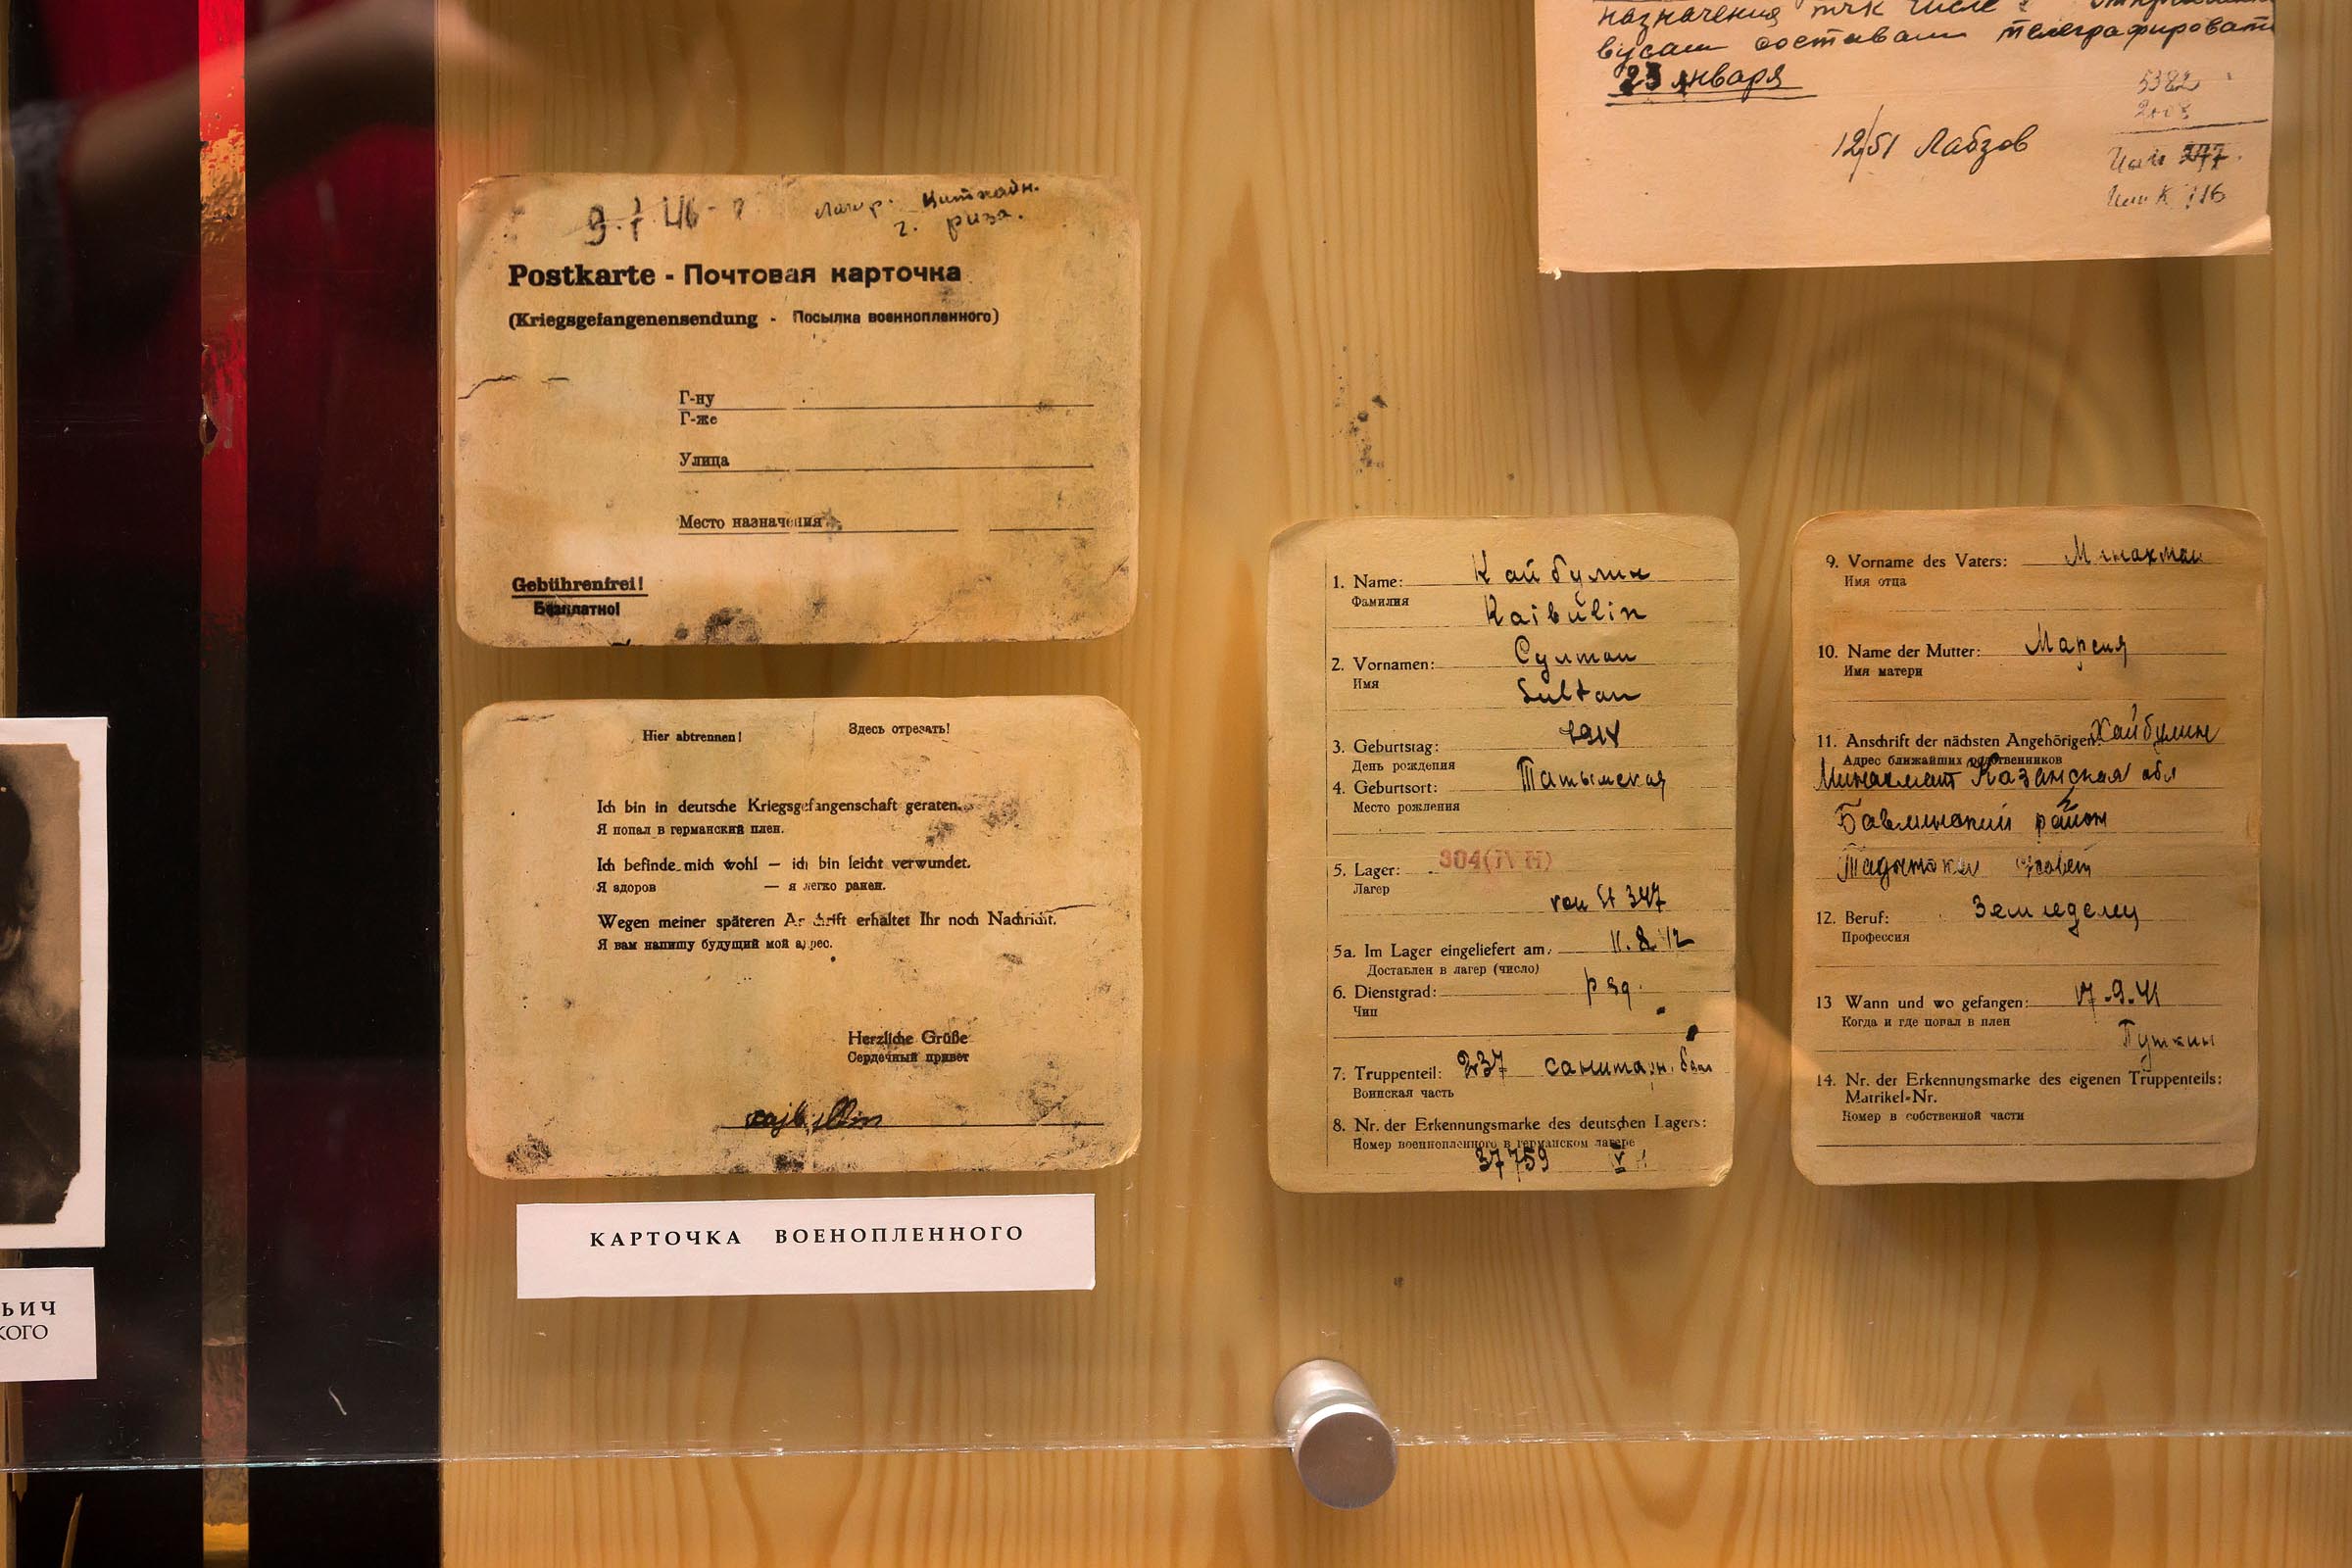 вусам составам телеграфировать
23 января
12/51 Лабзов
5382
116
г. риза.
Postkarte - Почтовая карточка
(Kriegsgefangenensendung - Посылка военнопланного)
Г-ну
Г-же
Улица
Место назначения
Gebührenfrei!
Безплатно!
Hier abtrennen! Здесь отрезать!
Ich bin in deutsche Kriegsgefangenschaft geraten.
Я попал в германский плен.
Ich befinde mich wohl — ich bin leicht verwundet.
Я здоров — я легко ранен.
Wegen meiner späteren Anschrift erhaltet Ihr noch Nachricht.
Я вам напишу будущий мой адрес.
Herzliche Grüße
Сердечный привет
КАРТОЧКА ВОЕНОПЛЕННОГО
ЬИЧ
КОГО
1. Name: Кайбулин
Фамилия
Kaibulin
2. Vornamen: Султан
Имя
Sultan
3. Geburtstag: 1914
День рождения
4. Geburtsort:
Место рождения
5. Lager: 304 (IV H)
Лагер
von St 347
5a. Im Lager eingeliefert am: 11.8.42
Доставлен в лагер (число)
6. Dienstgrad:
Чин
7. Truppenteil: 237 санитарн. бат
Воинская часть
8. Nr. der Erkennungsmarke des deutschen Lagers:
Номер военнопленного в германском лагере
37759
9. Vorname des Vaters: Минахман
Имя отца
10. Name der Mutter:
Имя матери
11. Anschrift der nächsten Angehörigen: Хайбулин
Адрес ближайших родственников
Казанская обл
Бавлинский район
12. Beruf: Земледелец
Профессия
13 Wann und wo gefangen: 17.9.41
Когда и где попал в плен
Пушкин
14. Nr. der Erkennungsmarke des eigenen Truppenteils:
Matrikel-Nr.
Номер в собственной части